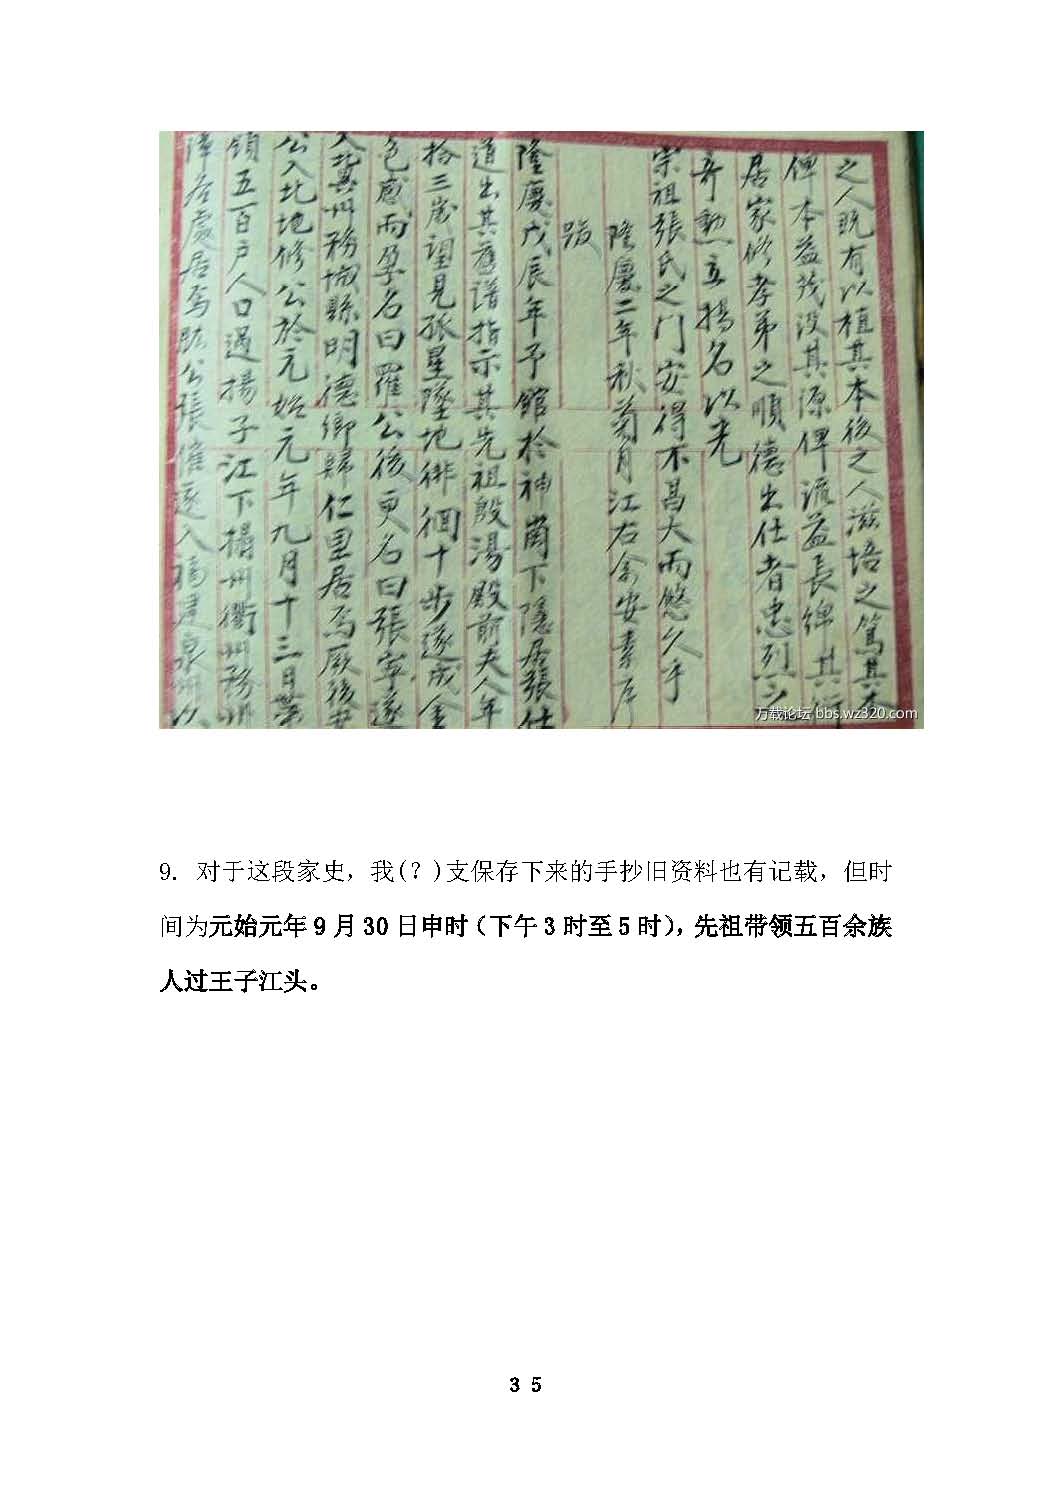 之人既有以植其本後之人滋培之篤其
俾本益茂浚其源俾流益長綿其
居家修孝弟之順德出仕者忠烈之
奇勲立揚名以光
宗祖張氏之門安得不昌大而悠久乎
隆慶二年秋菊月江右俞安素序
跋
隆慶戊辰年予館於神崗下隱居張仕
道出其舊譜指示其先祖殷湯殿前夫人年
拾三歲望見孤星墜地徘徊十步遂成金
色感而孕名曰羅公後更名曰張寧遂
入北冀州務城縣明德鄉歸仁里居焉厥後
公入北地修公於元始元年九月十三日
領五百戶人口過揚子江下揚州衢州婺州
擇居處居焉 公張催遂入福建泉州
万载论坛 bbs.wz320.com
9. 对于这段家史，我(？)支保存下来的手抄旧资料也有记载，但时
间为元始元年 9 月 30 日申时（下午 3 时至 5 时），先祖带领五百余族
人过王子江头。
35